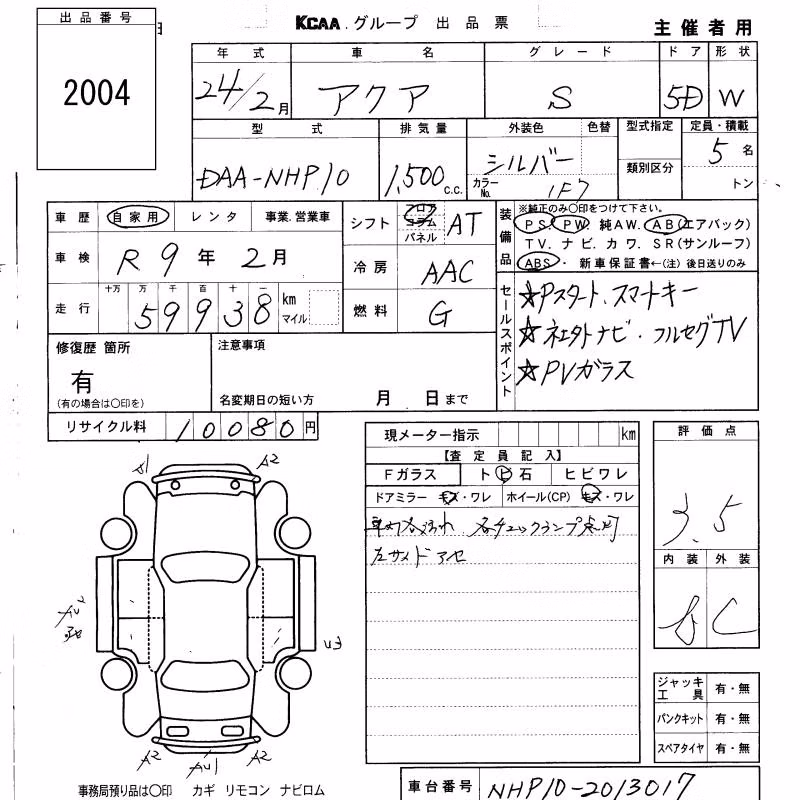 出品番号
2004
日
KCAA.グループ 出品票
主催者用
年式 車名 グレード ドア 形状
24/2月 アクア S 5D W
型式 排気量 外装色 色替 型式指定 定員・積載
DAA-NHP10 1,500 c.c. シルバー カラーNo. 1F7 類別区分 5名 トン
車歴 自家用 レンタ 事業.営業車
シフト フロア コラム パネル AT
車検 R9年2月
冷房 AAC
走行 十万 万 千 百 十 一 km マイル
59938
燃料 G
装備品
※純正のみ〇印をつけて下さい。
PS. PW 純AW. AB(エアバック)
TV. ナビ. カワ. SR(サンルーフ)
ABS・ 新車保証書←(注) 後日送りのみ
セールスポイント
☆Pスタート.スマートキー
フルセグTV
☆PVガラス
修復歴 箇所
有
(有の場合は〇印を)
注意事項
名変期日の短い方 月 日まで
リサイクル料 10080円
現メーター指示 km
【査定員記入】
Fガラス トビ石 ヒビワレ
ドアミラー キズ・ワレ ホイール(CP) キズ・ワレ
各チェックランプ点灯
左サイド
評価点
3.5
内装 外装
C
ジャッキ工具 有・無
パンクキット 有・無
スペアタイヤ 有・無
A1 A2
A2 AU1 A2
U3
事務局預り品は〇印 カギ リモコン ナビロム
車台番号 NHP10-2013017